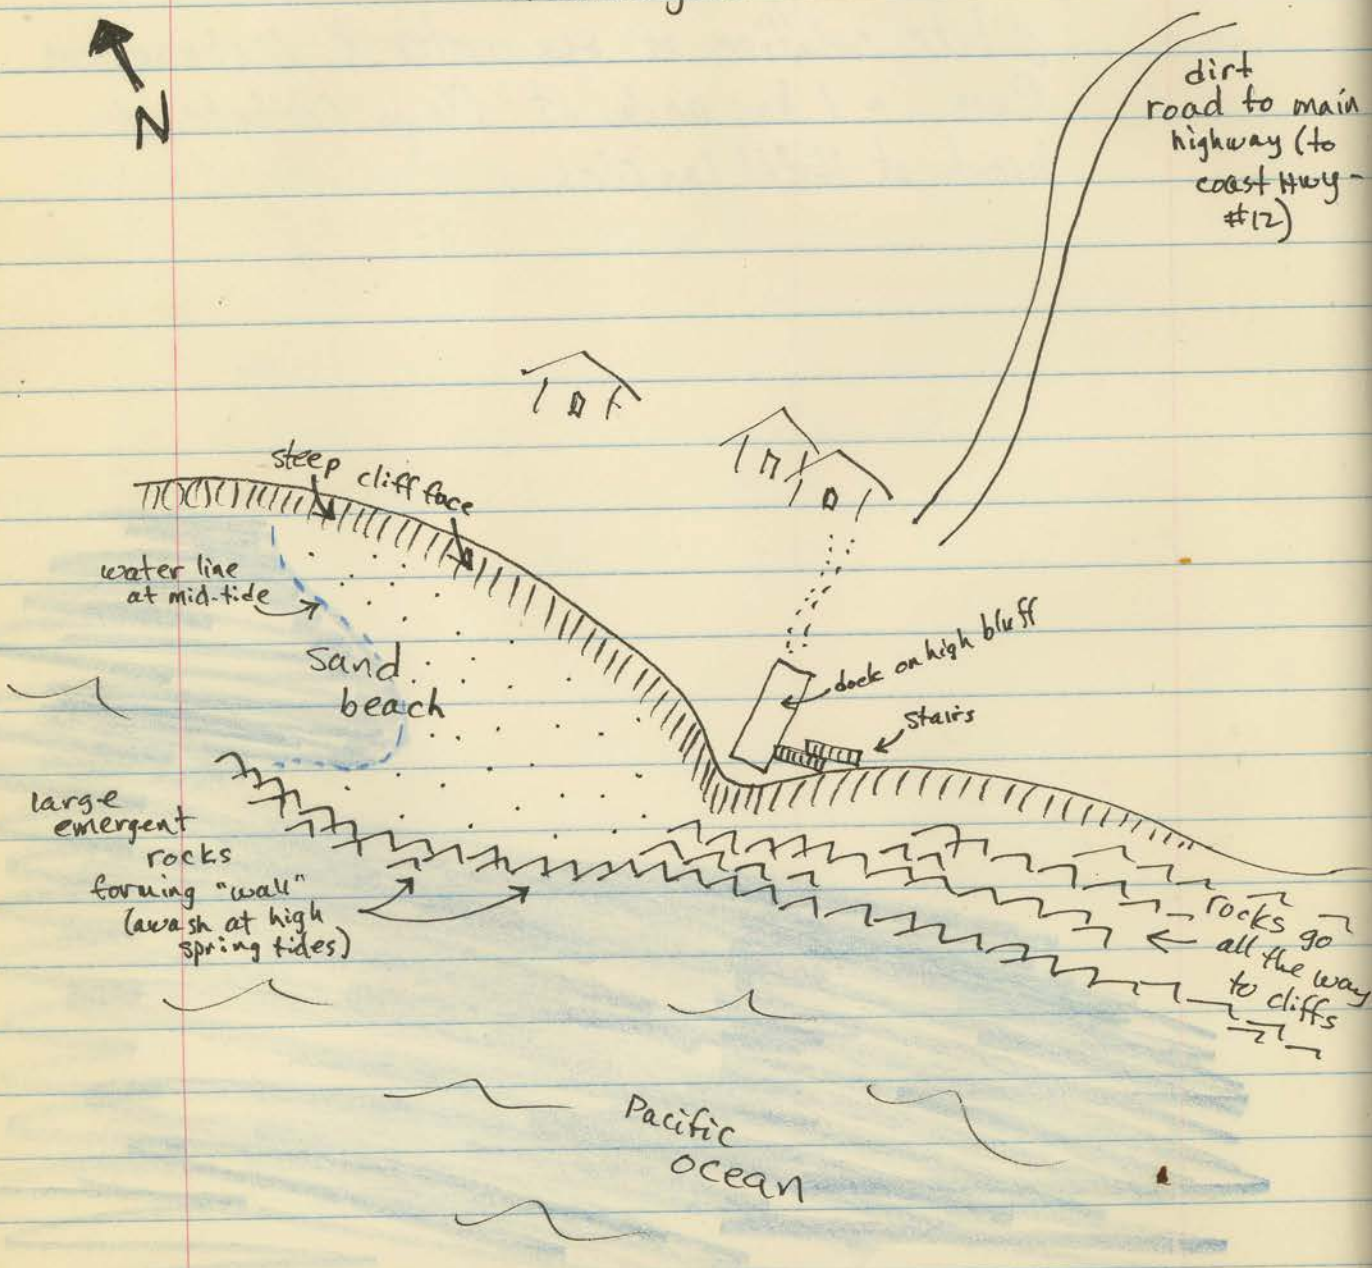 N
dirt
road to main
highway (to
coast Hwy -
#12)
steep cliff face
water line
at mid-tide
sand
beach
dock on high bluff
stairs
large
emergent
rocks
forming "wall"
(awash at high
spring tides)
rocks go
all the way
to cliffs
Pacific
ocean